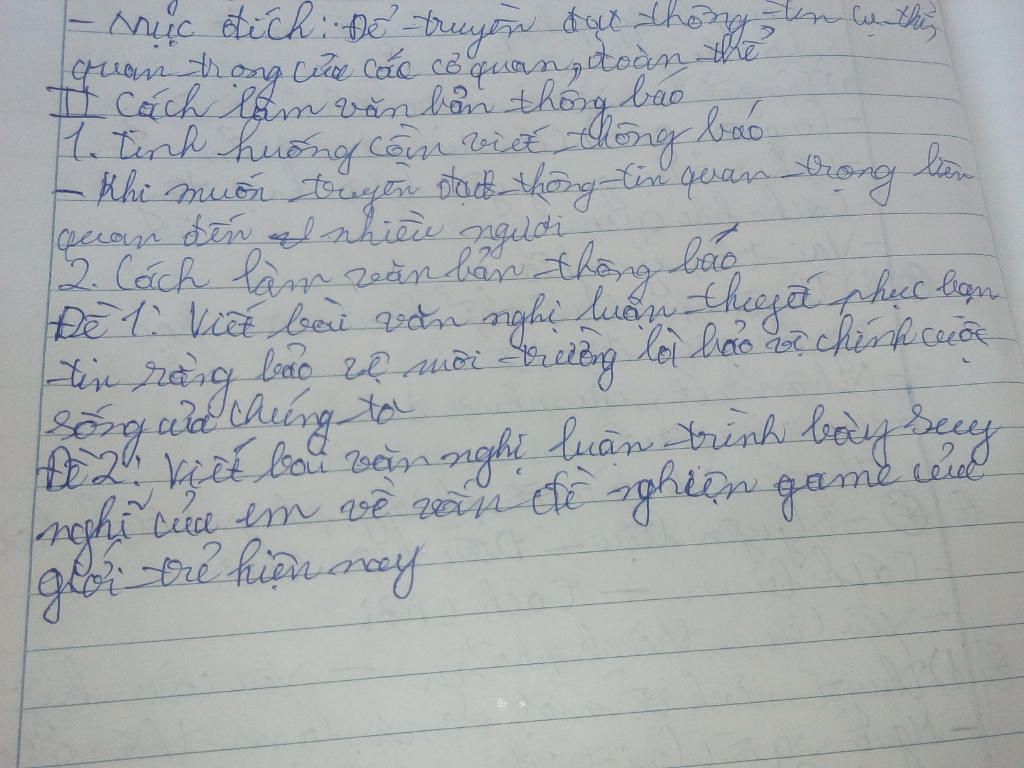 - Mục đích: Để truyền đạt thông tin cụ thể,
quan trọng của các cơ quan, đoàn thể
II Cách làm văn bản thông báo
1. Tình huống cần viết thông báo
- Khi muốn truyền đạt thông tin quan trọng liên
quan đến nhiều người
2. Cách làm văn bản thông báo
Đề 1: Viết bài văn nghị luận thuyết phục bạn
tin rằng bảo vệ môi trường là bảo vệ chính cuộc
sống của chúng ta
Đề 2: Viết bài văn nghị luận trình bày suy
nghĩ của em về vấn đề nghiện game của
giới trẻ hiện nay